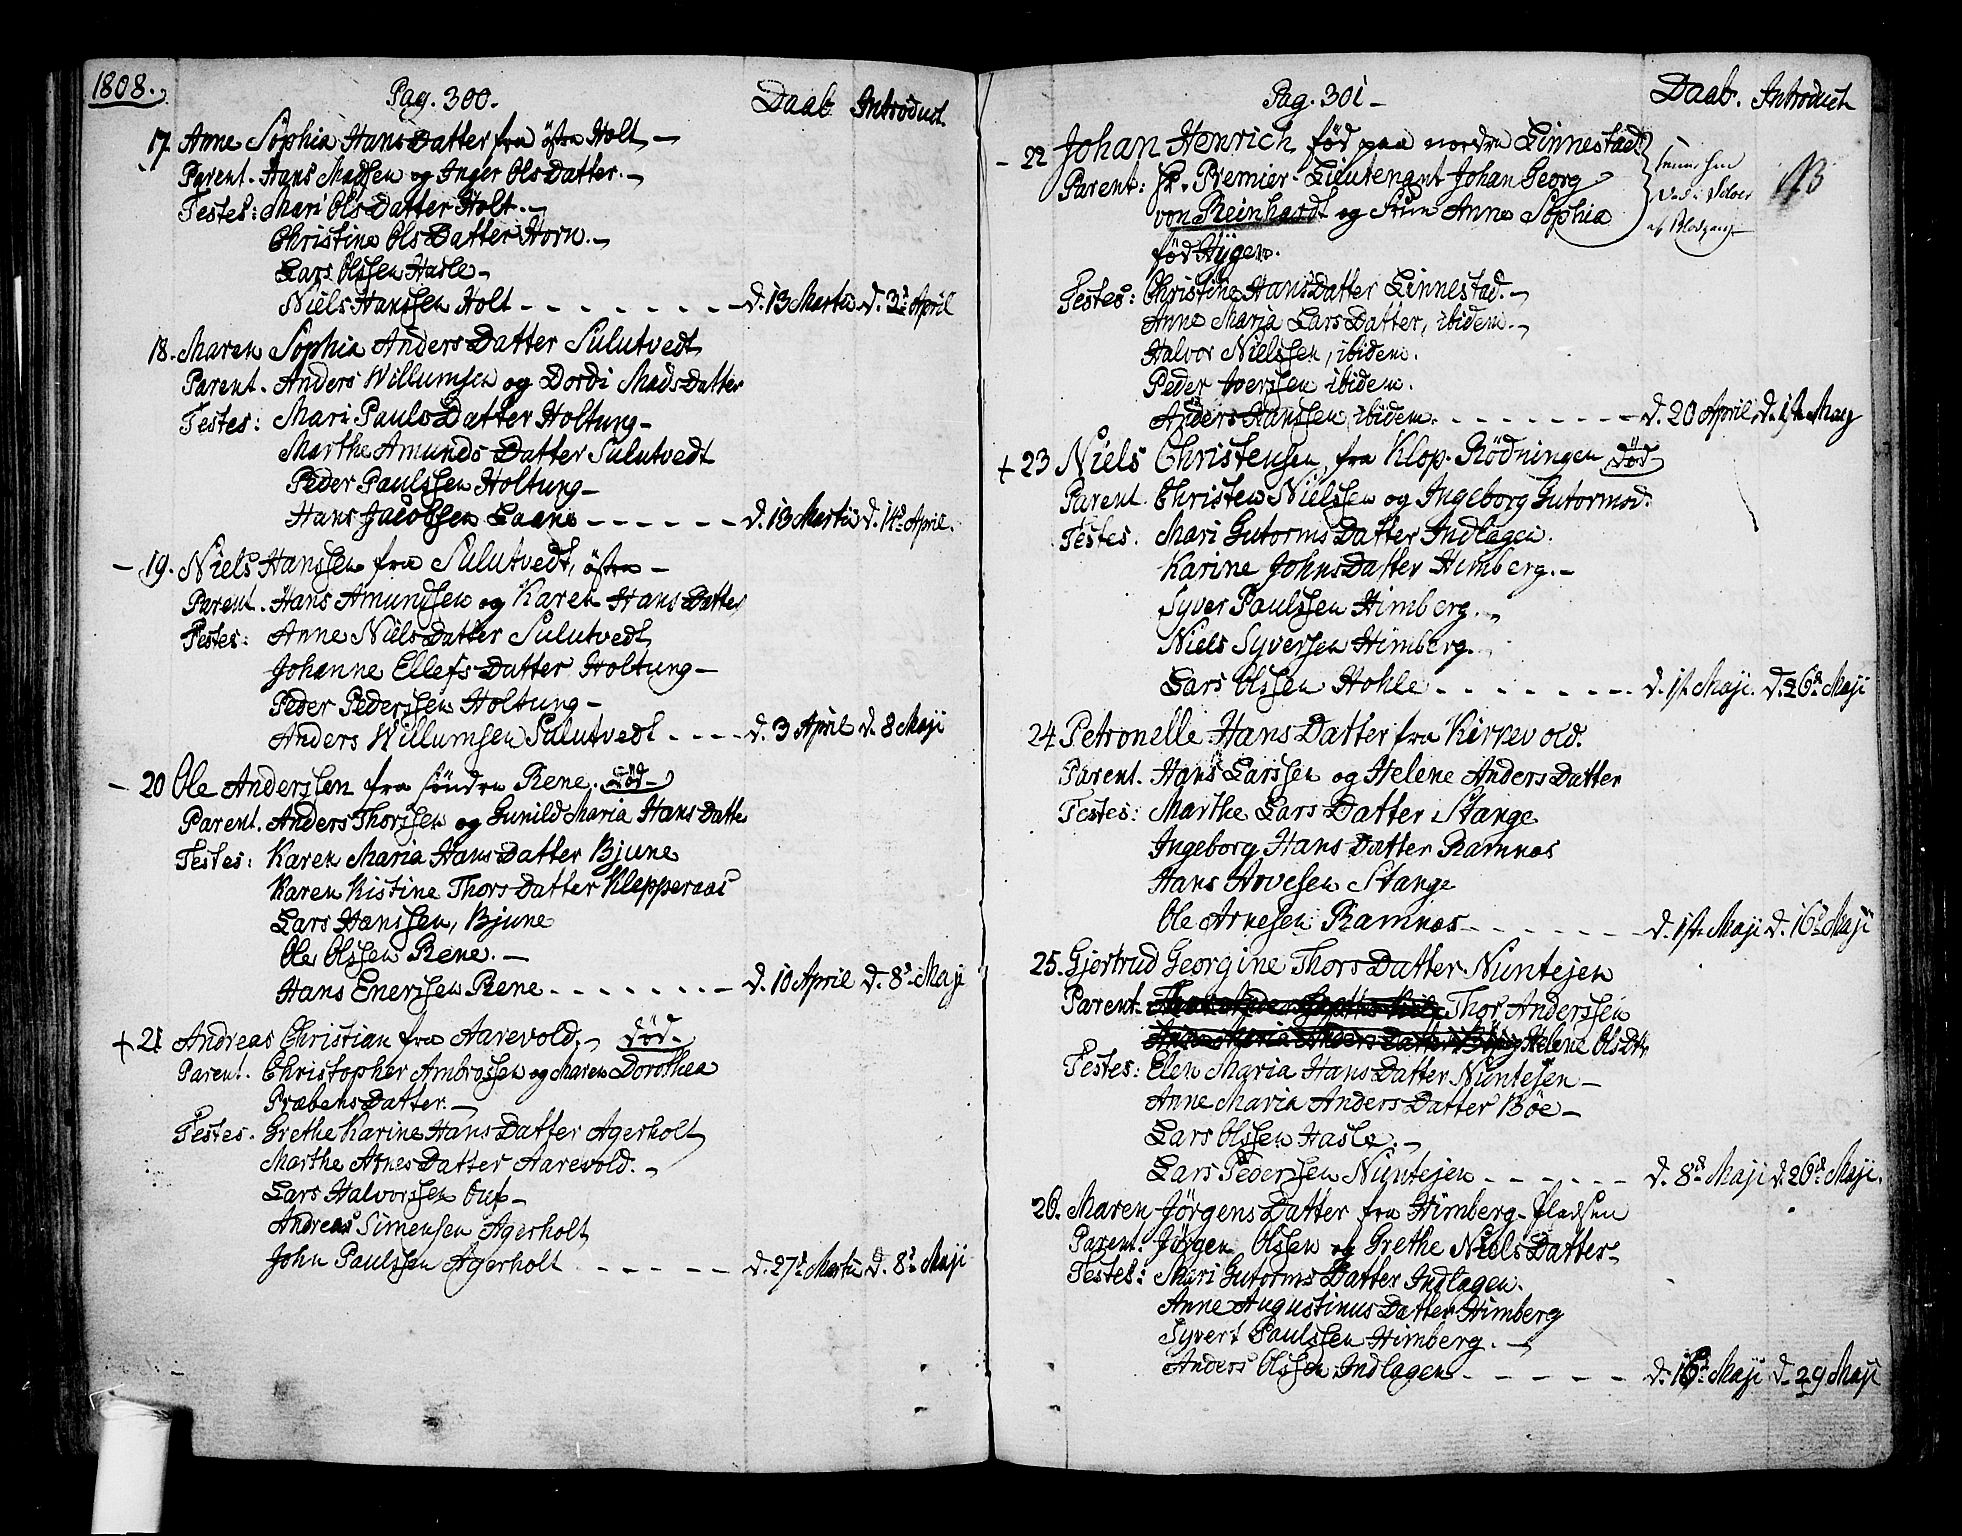 1808.
Pag. 300. Daab Introduct.
17 Anne Sophia HansDatter fra östre Holt
Parent. Hans Madssen og Inger OlsDatter.
Testes: Mari OlsDatter Holt.
Christine OlsDatter Horn.
Lars Olssen Hasle
Niels Hanssen Holt - - - - - - d. 13 Martii d. 3d April
18. Maren Sophia AndersDatter Sulutvedt
Parent. Anders Willumsen og Dordi MadsDatter
Testes: Mari PaulsDatter Holtung
Marthe AmundsDatter Sulutvedt
Peder Paulssen Holtung
Hans Jacobssen Laane - - - - - - d. 13 Martii d. 14d April.
- 19. Niels Hanssen fra Sulutvedt, östre
Parent. Hans Amundsen og Karen HansDatter
Testes: Anne NielsDatter Sulutvedt
Johanne EllefsDatter Holtung
Peder Pederssen Holtung
Anders Willumsen Sulutvedt - - - - d. 3 April d. 8 Maji
- 20 Ole Anderssen fra söndre Rene. död
Parent. Anders Thorssen og Gunild Maria HansDatte
Testes: Karen Maria HansDatter Bjune
Karen Kistine ThorsDatter Klepperaas
Lars Hanssen, Bjune
Ole Olssen Rene.
Hans Enerssen Rene - - - - - - - d. 10 April d. 8d Maji
+ 21 Andreas Christian fra Aarevold. död.
Parent. Christopher Ambrossen og Maren Dorothea
PræbensDatter.
Testes. Grethe Karine HansDatter Agerholt
Marthe ArnesDatter Aarevold.
Lars Halvorssen Ouf
Andreas Simensen Agerholt
John Paulssen Agerholt - - - - - d. 27d Martii d. 8d Maji
Pag. 301 Daab. Introduct
- 22 Johan Henrich, föd paa nordre Linnestad
Parent: Hr. Premier-Lieutenant Johan Georg
von Reinhardt og Frue Anne Sophia
föd Hygen.
af Blodgang
Testes: Christine HansDatter Linnestad.
Anne Maria LarsDatter, ibidem.
Halvor Nielssen, ibidem.
Peder Iverssen ibidem.
Anders Hanssen, ibidem. - - - - - - - d. 20 April, d. 1ste May
+ 23 Niels Christensen, fra Klop-Rödningen död
Parent. Christen Nielssen og Ingeborg Gutormsd.
Testes. Mari GutormsDatter Indlagen.
Karine JohnsDatter Himberg.
Syver Paulssen Himberg.
Niels Syversen Himberg.
Lars Olssen Hohle - - - - - - - d. 1st Maji. d. 26d Maji
24. Petronelle HansDatter fra Kirkevold.
Parent. Hans Larssen og Helene AndersDatter
Testes: Marthe LarsDatter Stange
Ingeborg HansDatter Ramnos
Hans Arvesen Stange
Ole Arnesen Ramnos - - - - - - d. 1ste Maji d. 16d Maji
25. Gjertrud Georgine ThorsDatter Nuntejen
Parent. Thor Anderssen
Helene OlsDtr
Testes: Elen Maria HansDatter Nuntesen
Anne Maria AndersDatter Böe
Lars Olssen Hasle.
Lars Pederssen Nuntejen - - - - - - d. 8d Maji d. 26d Maji.
26. Maren JörgensDatter fra Himberg-Pladsen
Parent. Jörgen Olssen og Grethe NielsDatter
Testes: Mari GutormsDatter Indlagen.
Anne AugustinusDatter Himberg
Syvert Paulssen Himberg.
Anders Olssen Indlagen - - - - - - d. 16d Maji d. 29 Maji